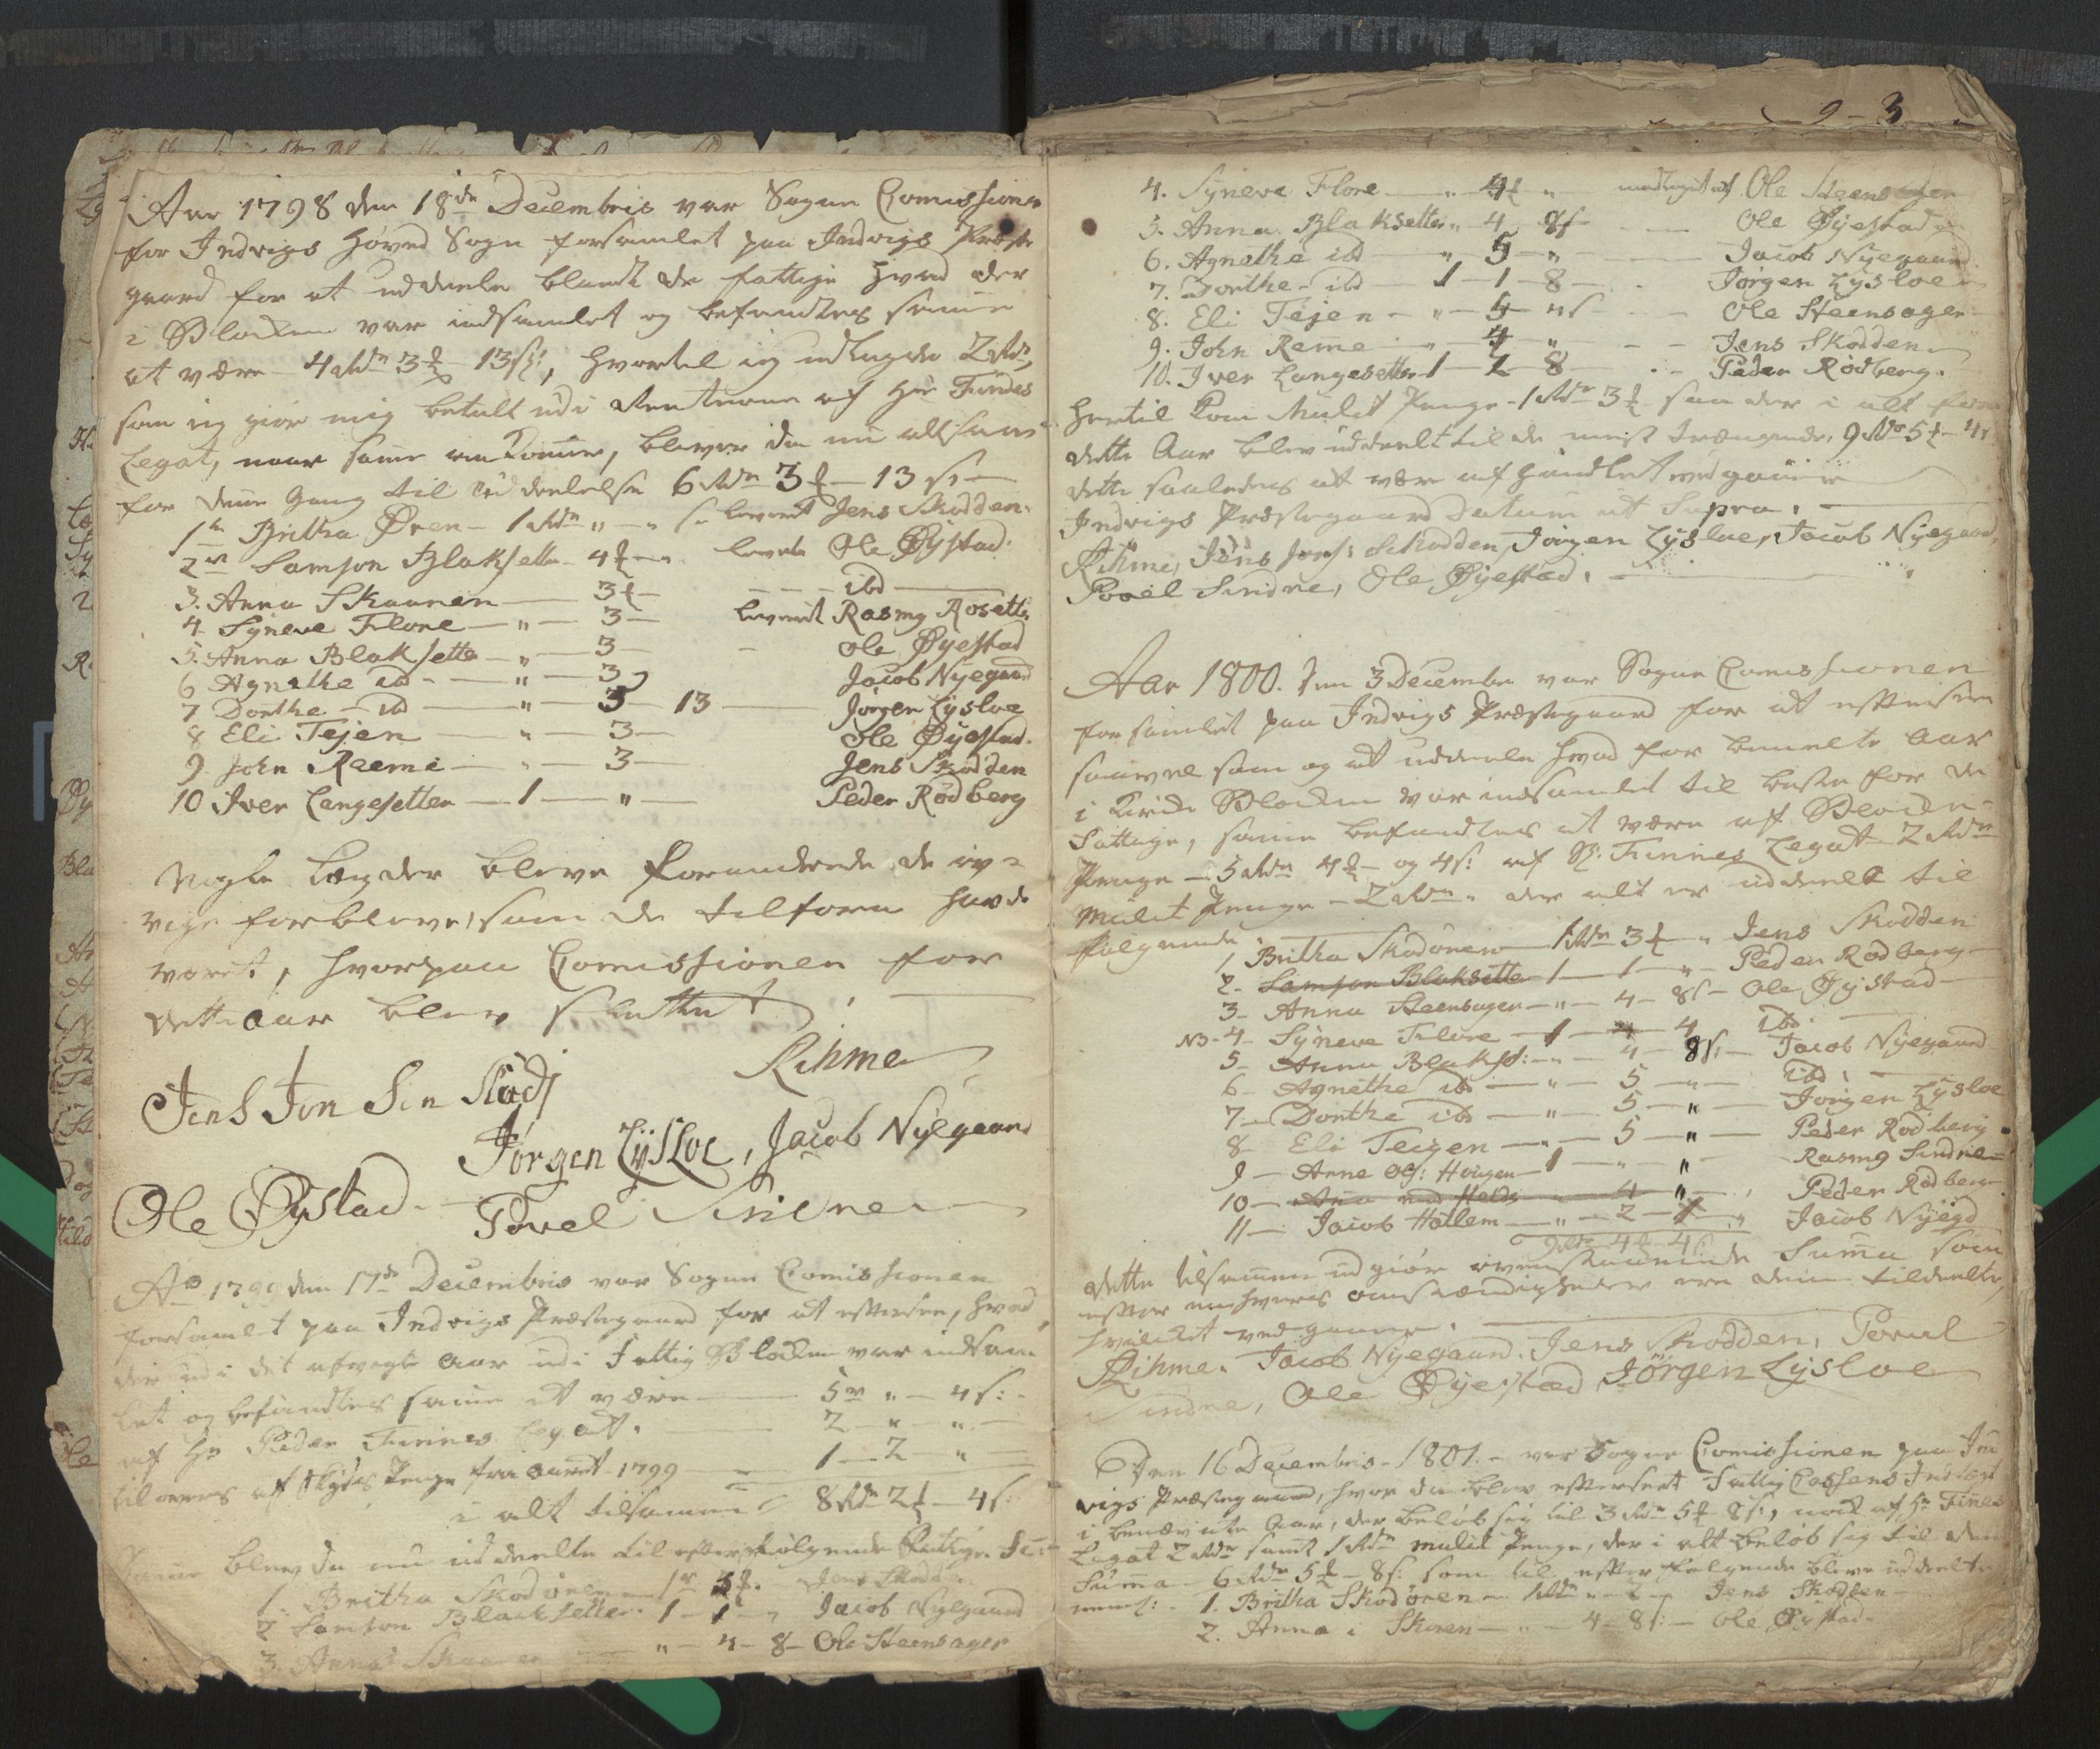 Aar 1798 den 18de Decembris var Sogne Comissionen
for Indvigs Hoved Sogn forsamlet paa Indvigs Præste
gaard for at uddeele blandt de fattige hvad der
i Blocken var indsamlet og befandtes samme
at være 4 Rdr 3 ₰ 13 s:, hvortil ieg udlagde 2 Rdr,
som ieg giør mig betalt udi Renterne af Hr Findes
Legat, naar samme ankommer, bliver da nu altsaa
for denne Gang til Uddeelelse 6 Rdr 3 ₰ 13 s:
1te Britha Øren - 1 Rdr " - " s leveret Jens Skodden.
2en Samson Blaksetter - 4 ₰ - " levert Ole Øystad.
3. Anna Skaannen - 3 ₰ - ibd
4 Syneve Flore - " - 3 - leveret Rasmg Rosette
5. Anna Blaksette - " - 3 - Ole Øyestad
6 Agnethe ibd - " - 3 Jacob Nyegaard
7 Dorthe - ibd - " - 3 - 13 - Jørgen Lysloe
8 Eli Tejen - " - 3 - Ole Øyestad.
9 John Reeme - - 3 - Jens Skodden
10 Iver Langesetter - 1 - " - Peder Rødberg
Nogle Lægder bleve forandrede de øv=
rige forbleve, som de tilforn havde
været, hvorpaa Comissionen for
dette aar blev sluttet.
Rihme
Jens Jon Sen Skod
Jørgen Lysloe, Jacob Nyegaard
Ole Øystad - Povel Sindne
Ao 1799 den 17de Decembris var Sogne Comissionen
forsamlet paa Indvigs Præstegaard for at efterse, hvad
der udi det afvigte aar udi Fattig Blocken var indsam
let og befandtes samme at være - 5 rdr " - 4 s:
af Hr Peder Finnes Legat. - 2 - " - " -
til overs af Skyds Penge fra aaret 1799 - 1 - 2 - "
i alt tilsammen 8 Rdr 2 ₰ - 4 s:
Samme blev da nu uddeelte til efterfølgende Fattige
1. Britha Skodøren - 1 r 3 ₰. Jens Skodden
2 Samson Blacksetter. 1 - 1 - " Jacob Nyegaard
3. Anna Skaanen " - 4 - 8 - Ole Steensager
9 - 3
4. Syneve Flore - " 4 ₰ " modtaget af Ole Steensager
5. Anna Blaksetter " 4 8 s - Ole Øyestad
6. Agnethe ibd - " 5 - " - Jacob Nyegaard
7. Dorthe - ibd - 1 - 1 - 8 - Jørgen Lysloe
8. Eli Tejen - " - 5 - " s - Ole Steensager
9. John Reme - " - 4 - " - Jens Skodden
10. Iver Langesetter 1 - 2 - 8 - Peder Rødberg.
Hertil kom Mulct Penge - 1 Rdr 3 ₰ saa der i alt for
dette Aar blev uddeelt til de meest trængende, 9 Rdr 5 ₰ - 4 s
dette saaledes at være afhandlet vedgaaes
Indvigs Præstegaard Datum ut Supra.
Rihme, Jens Jons: Skodden, Jørgen Lysloe, Jacob Nyegaard,
Povel Sindne, Ole Øyestad.
Aar 1800. den 3 Decembr var Sogne Comissionen
forsamlet paa Indvigs Præstegaard for at efterse
saavel som og at uddeele hvad for bemelte aar
i Kirke Blocken var indsamlet til beste for de
Fattige, samme befandtes at være af Block=
Penge - 5 Rdr 4 ₰ - og 4 s: af Hr: Finnes Legat 2 Rdr
Mulct Penge - 2 Rdr. der alt er uddeelt til
følgende:
1, Britha Skodøren - 1 Rdr 3 ₰ " Jens Skodden
2 - Samson Blaksette - 1 - 1 - " - Peder Rødberg
3 - Anna Steensagen - " - 4 - 8 s - Ole Øystad -
NB - 4 - Syneve Flore - 1 - 4 ibd.
5 - Anna Blakst: - " - 4 - 8 s: - Jacob Nyegaard
6 - Agnethe ibd - " - 5 - " - ibd.
7 - Dorthe ibd - " - 5 - " - Jørgen Lysloe
8 - Eli Teigen - " - 5 - " - Peder Rødberg
9 - Anne Hougen - 1 - " - " Rasmg Sindne
10 - - 4 - " Peder Rødberg
11 - Jacob Hallem - " - 2 - 1 - " Jacob Nyegd
9 Rdr 4 ₰ 4 s
dette tilsammen udgiør ovenstaaende Summa som
efter enhvers omstændigheder ere dem tildeelte,
hvilket vedgaaes.
Rihme. Jacob Nyegaard. Jens Skodden, Povel
Sindne, Ole Øyestad Jörgen Lysloe
Den 16 Decembris - 1801. - var Sogne Comissionen paa Ind
vigs Præstegaard, hvor da blev efterseet Fattig Cassens Indtægt
i benævnte Aar, der beløb sig til 3 Rdr 5 ₰ 8 s:, nock af Hr Finnes
Legat 2 Rdr samt 1 Rdr Mulct Penge, der i alt beløb sig til den
Summa - 6 Rdr 5 ₰ - 8 s: som til efterfølgende bleve uddeelte
neml: - 1. Britha Skodøren - 1 Rdr " - " Jens Skodden -
2. Anna i Skoren - " - 4 - 8 s: - Ole Øystad -